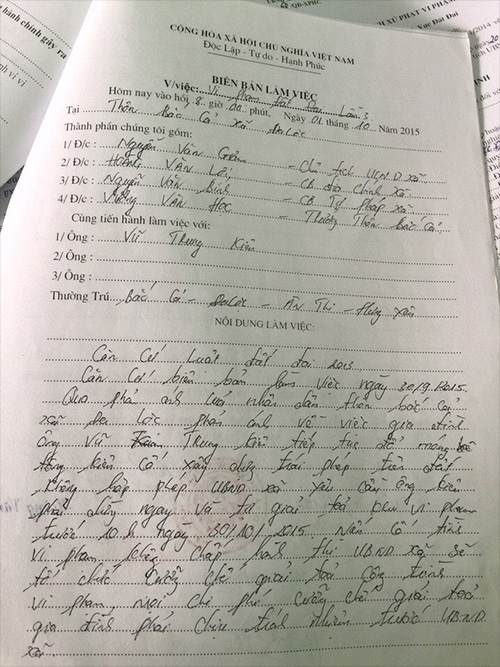 CỘNG HÒA XÃ HỘI CHỦ NGHĨA VIỆT NAM
Độc Lập - Tự do - Hạnh Phúc
BIÊN BẢN LÀM VIỆC
V/v việc: Vi phạm đất đai lần 3
Hôm nay vào hồi, 8 giờ 00 phút, Ngày 01 tháng 10 Năm 2015
Tại Thôn Bắc Cả Xã Đa Lộc
Thành phần chúng tôi gồm:
1/ Đ/c : Nguyễn Văn - Chủ tịch UBND xã
2/ Đ/c : Hoàng Văn - CB địa chính xã
3/ Đ/c : Nguyễn Văn Bính - CB Tư pháp xã
4/ Đ/c : Vương Văn Học - Trưởng Thôn Bắc Cả
Cùng tiến hành làm việc với:
1/ Ông : Vũ Trung Kiên
2/ Ông :
3/ Ông :
Thường Trú: Bắc Cả - Đa Lộc - Ân Thi - Hưng Yên
NỘI DUNG LÀM VIỆC:
Căn Cứ Luật đất đai 2013
Căn Cứ biên bản làm việc ngày 30/9.2015
Qua phản ánh của nhân dân thôn bắc cả
xã Đa Lộc phản ánh về việc gia đình
ông Vũ Trung Kiên tiếp tục đổ móng bê
tông kiên cố xây dựng trái phép trên đất
không hợp pháp UBND xã yêu cầu ông kiên
phải dừng ngay và tự giải tỏa khu vi phạm
trước 10h ngày 2015 Nếu cố tình
vi phạm không chấp hành thì UBND xã sẽ
tổ chức cưỡng chế giải tỏa công trình
vi phạm, mọi chi phí cưỡng chế giải tỏa
gia đình phải chịu trách nhiệm trước UBND
xã